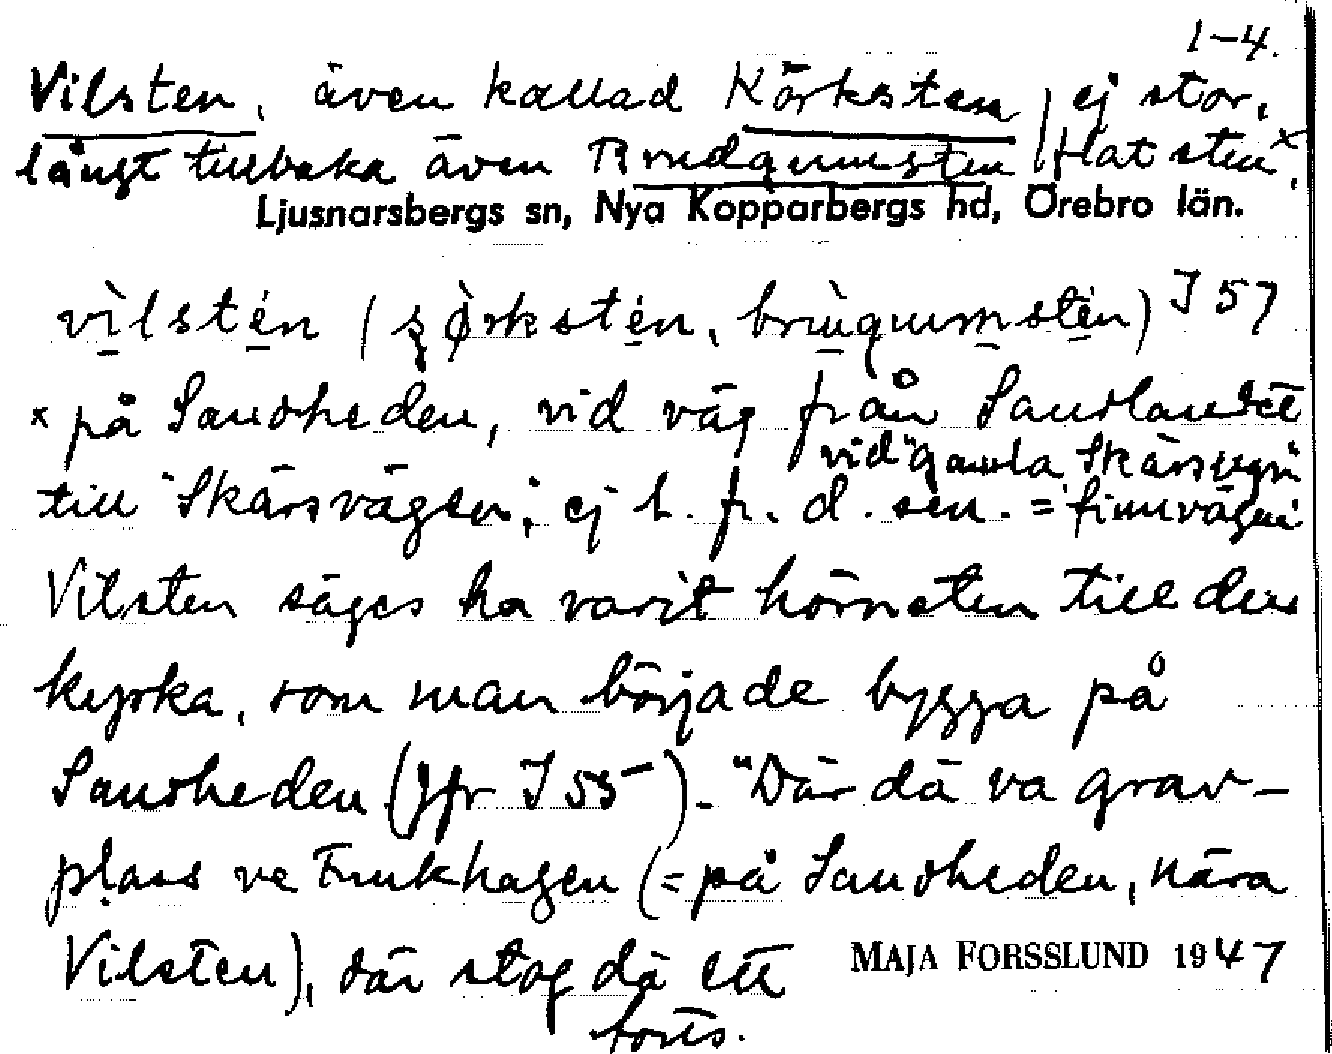 1-4.
Vilsten, även kallad Körksten, ej stor,
långt tillbaka även Brudgumsten flat sten x.
Ljusnarsbergs sn, Nya Kopparbergs hd, Örebro län.
vìlstén ( ʂørkstén, brùgumstèn) I 57
x på Sandheden, vid väg från Sandlandet
vid "gamla Skärsvägen"
till "Skärsvägen", ej l. fr. d. sen. = finnvägen
Vilsten säges ha varit hörnsten till den
kyrka, som man började bygga på
Sandheden (Jfr I 55). "Där dä va grav-
plass ve Funkhagen (= på Sandheden, nära
Vilsten), där stog dä ett
MAJA FORSSLUND 1947
forts.